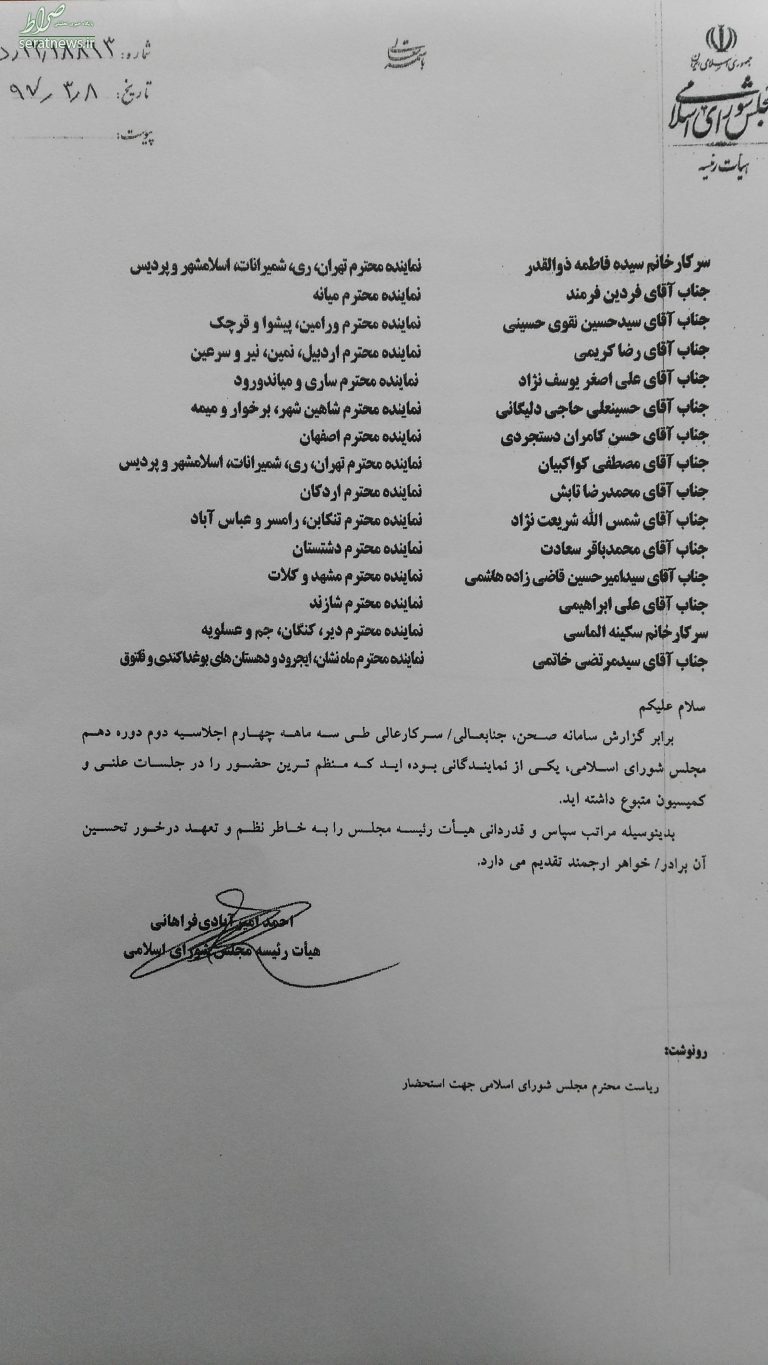 صراط
پایگاه خبری تحلیلی
seratnews.ir
جمهوری اسلامی ایران
مجلس شورای اسلامی
هیأت رئیسه
باسمه تعالی
شماره: ۲۲/۱۸۸۱۳/د
تاریخ: ۹۷/۳/۸
پیوست:
سرکارخانم سیده فاطمه ذوالقدر نماینده محترم تهران، ری، شمیرانات، اسلامشهر و پردیس
جناب آقای فردین فرمند نماینده محترم میانه
جناب آقای سیدحسین نقوی حسینی نماینده محترم ورامین، پیشوا و قرچک
جناب آقای رضا کریمی نماینده محترم اردبیل، نمین، نیر و سرعین
جناب آقای علی اصغر یوسف نژاد نماینده محترم ساری و میاندورود
جناب آقای حسینعلی حاجی دلیگانی نماینده محترم شاهین شهر، برخوار و میمه
جناب آقای حسن کامران دستجردی نماینده محترم اصفهان
جناب آقای مصطفی کواکبیان نماینده محترم تهران، ری، شمیرانات، اسلامشهر و پردیس
جناب آقای محمدرضا تابش نماینده محترم اردکان
جناب آقای شمس الله شریعت نژاد نماینده محترم تنکابن، رامسر و عباس آباد
جناب آقای محمدباقر سعادت نماینده محترم دشتستان
جناب آقای سیدامیرحسین قاضی زاده هاشمی نماینده محترم مشهد و کلات
جناب آقای علی ابراهیمی نماینده محترم شازند
سرکارخانم سکینه الماسی نماینده محترم دیر، کنگان، جم و عسلویه
جناب آقای سیدمرتضی خاتمی نماینده محترم ماه نشان، ایجرود و دهستان های بوغداکندی و قلتوق
سلام علیکم
برابر گزارش سامانه صحن، جنابعالی/ سرکارعالی طی سه ماهه چهارم اجلاسیه دوم دوره دهم
مجلس شورای اسلامی، یکی از نمایندگانی بوده اید که منظم ترین حضور را در جلسات علنی و
کمیسیون متبوع داشته اید.
بدینوسیله مراتب سپاس و قدردانی هیأت رئیسه مجلس را به خاطر نظم و تعهد درخور تحسین
آن برادر/ خواهر ارجمند تقدیم می دارد.
احمد امیرآبادی فراهانی
هیأت رئیسه مجلس شورای اسلامی
رونوشت:
ریاست محترم مجلس شورای اسلامی جهت استحضار